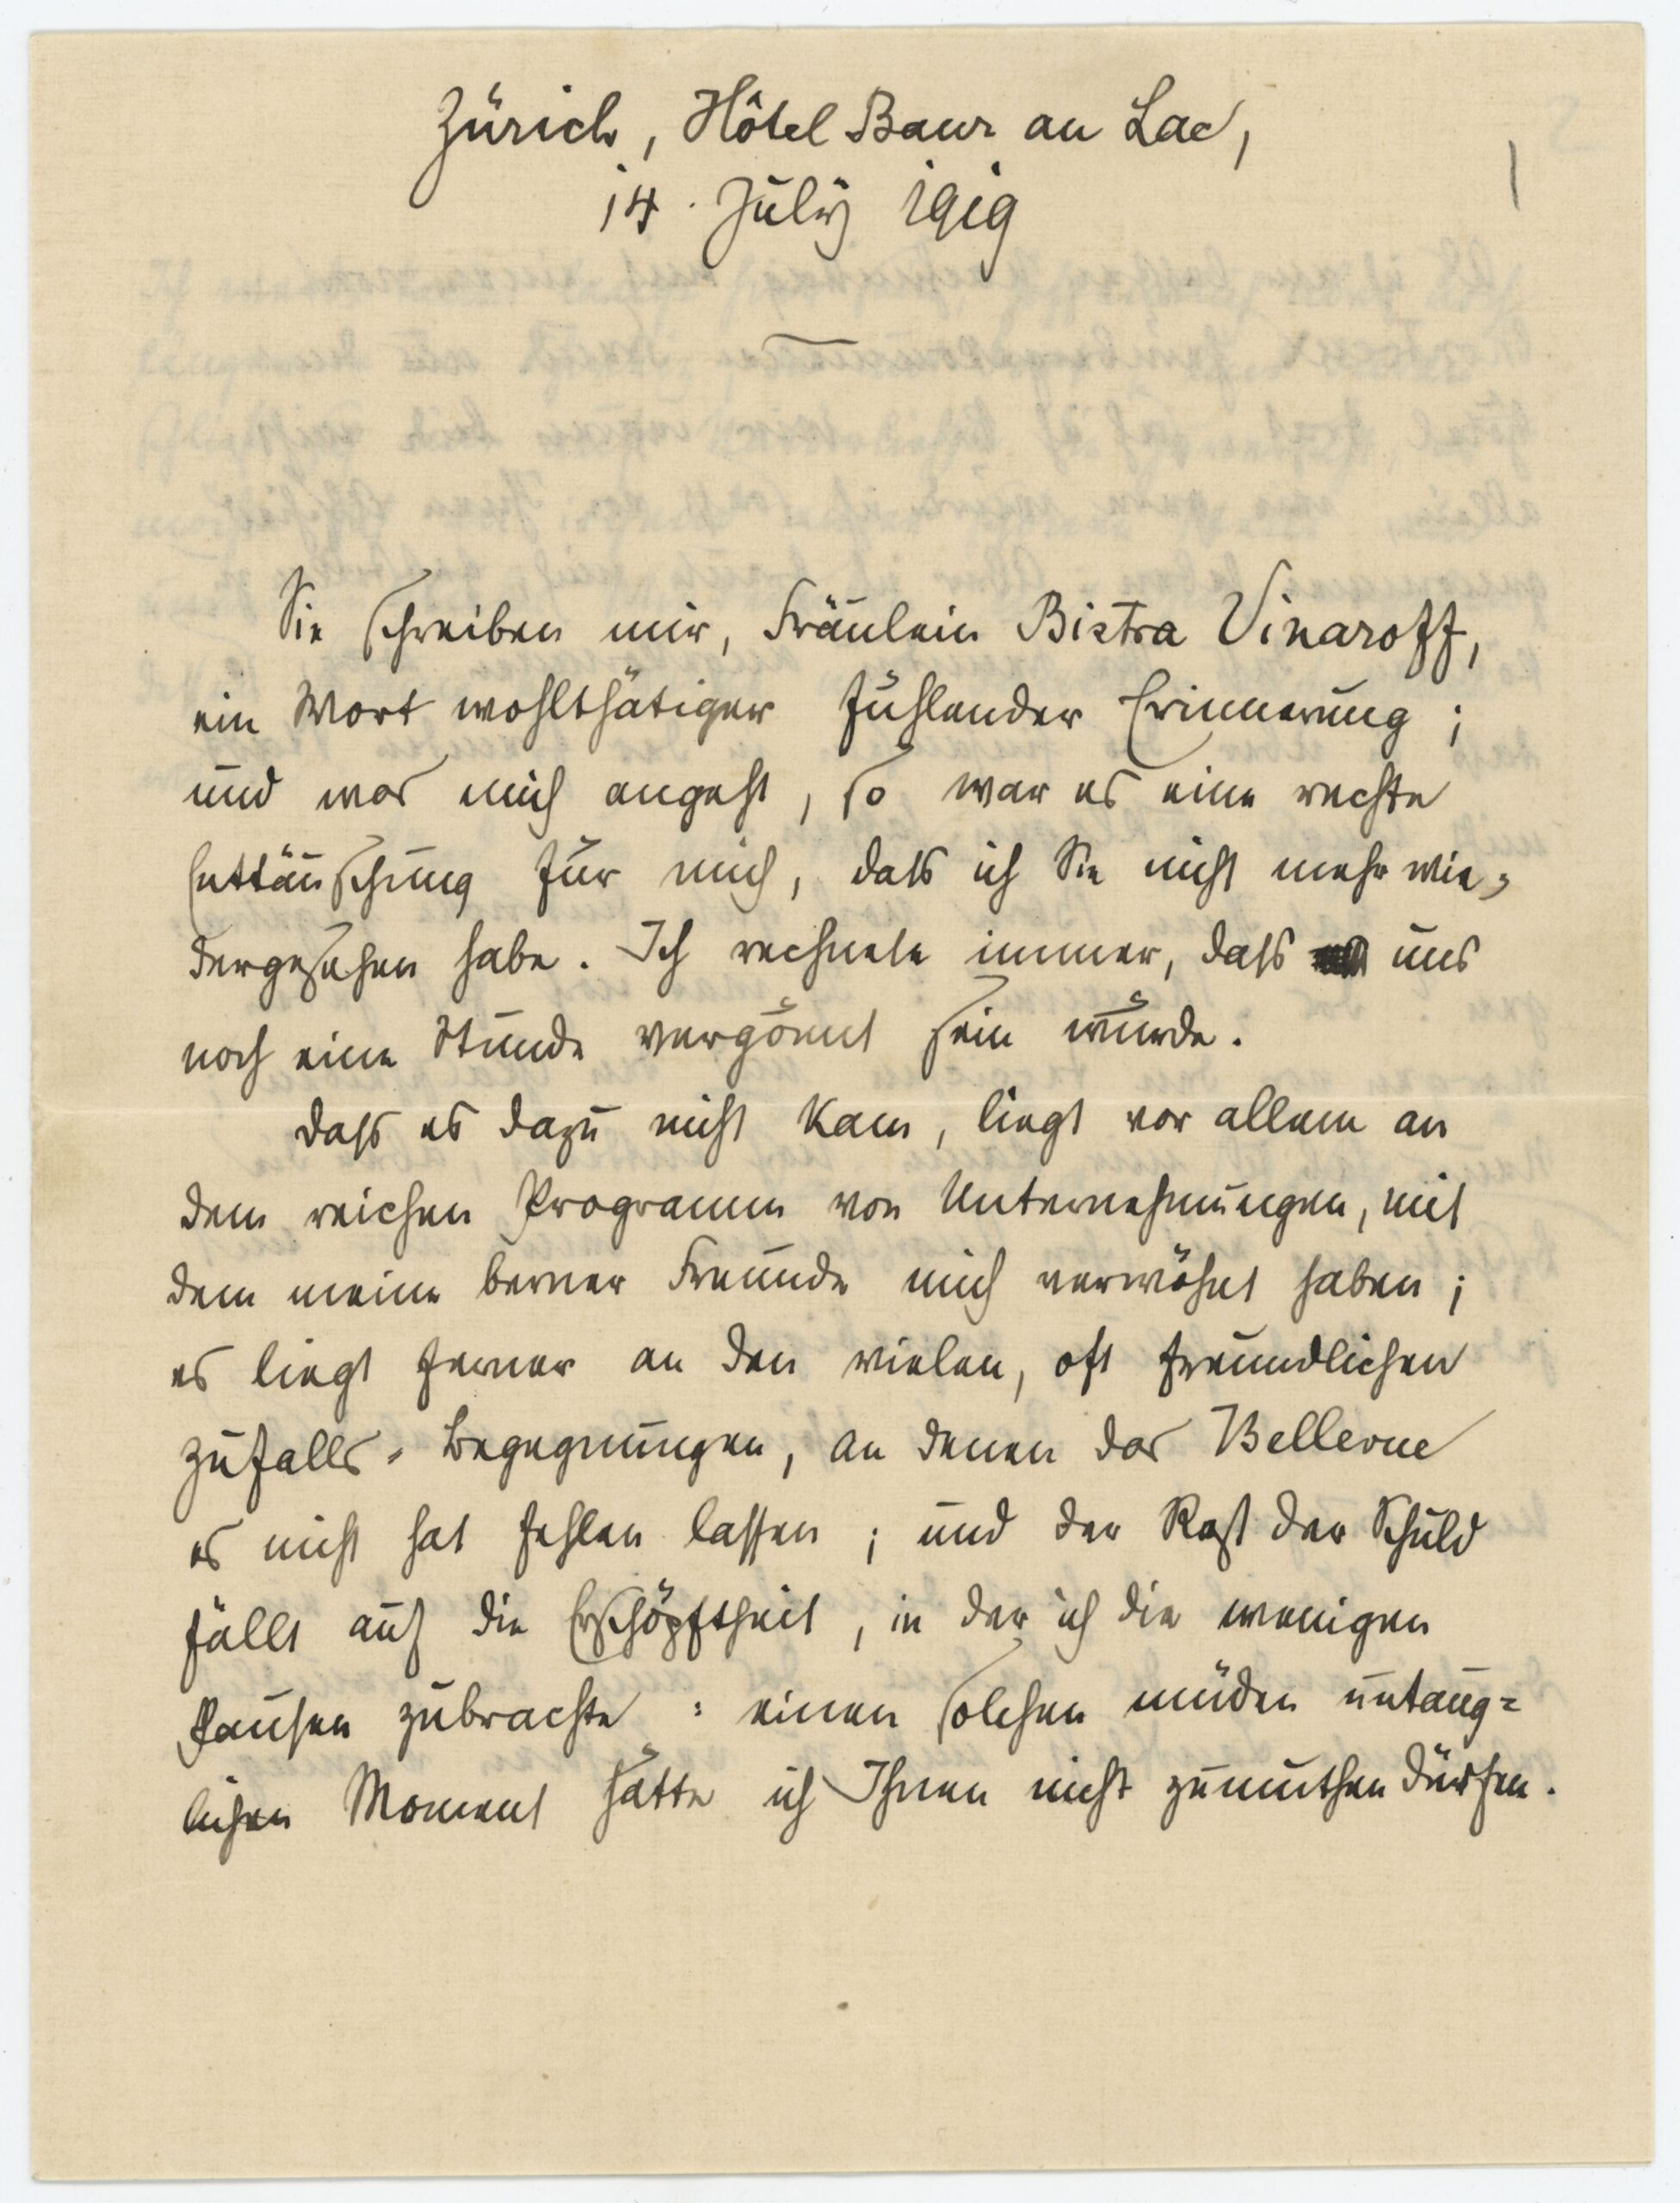 Zürich, Hôtel Baur au Lac,
14. Juli 1919
1
Sie schreiben mir, Fräulein Bistra Vinaroff,
ein Wort wohlthätiger fühlender Erinnerung;
und was mich angeht, so war es eine rechte
Enttäuschung für mich, dass ich Sie nicht mehr wie=
dergesehen habe. Ich rechnete immer, dass uns
noch eine Stunde vergönnt sein würde.
Dass es dazu nicht kam, liegt vor allem an
dem reichen Programm von Unternehmungen, mit
dem meine berner Freunde mich verwöhnt haben;
es liegt ferner an den vielen, oft freundlichen
Zufalls=Begegnungen, an denen das Bellevue
es nicht hat fehlen lassen; und der Rest der Schuld
fällt auf die Erschöpftheit, in der ich die wenigen
Pausen zubrachte: einen solchen müden untaug=
lichen Moment hätte ich Ihnen nicht zumuthen dürfen.